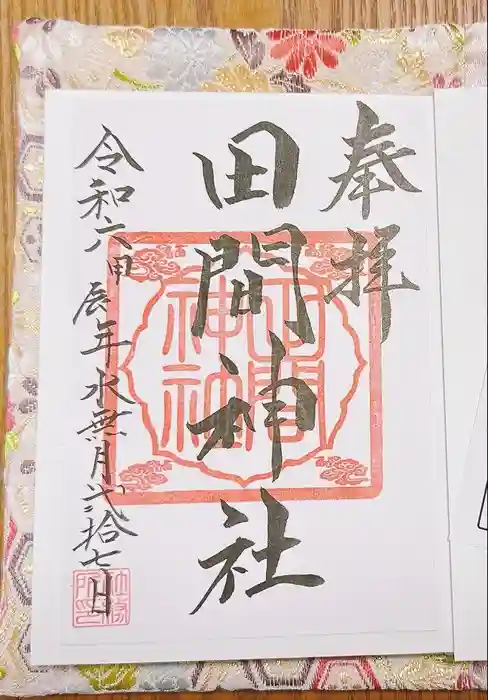 奉拝
田間神社
令和六甲辰年水無月弐拾七日
田間神社
社務所印